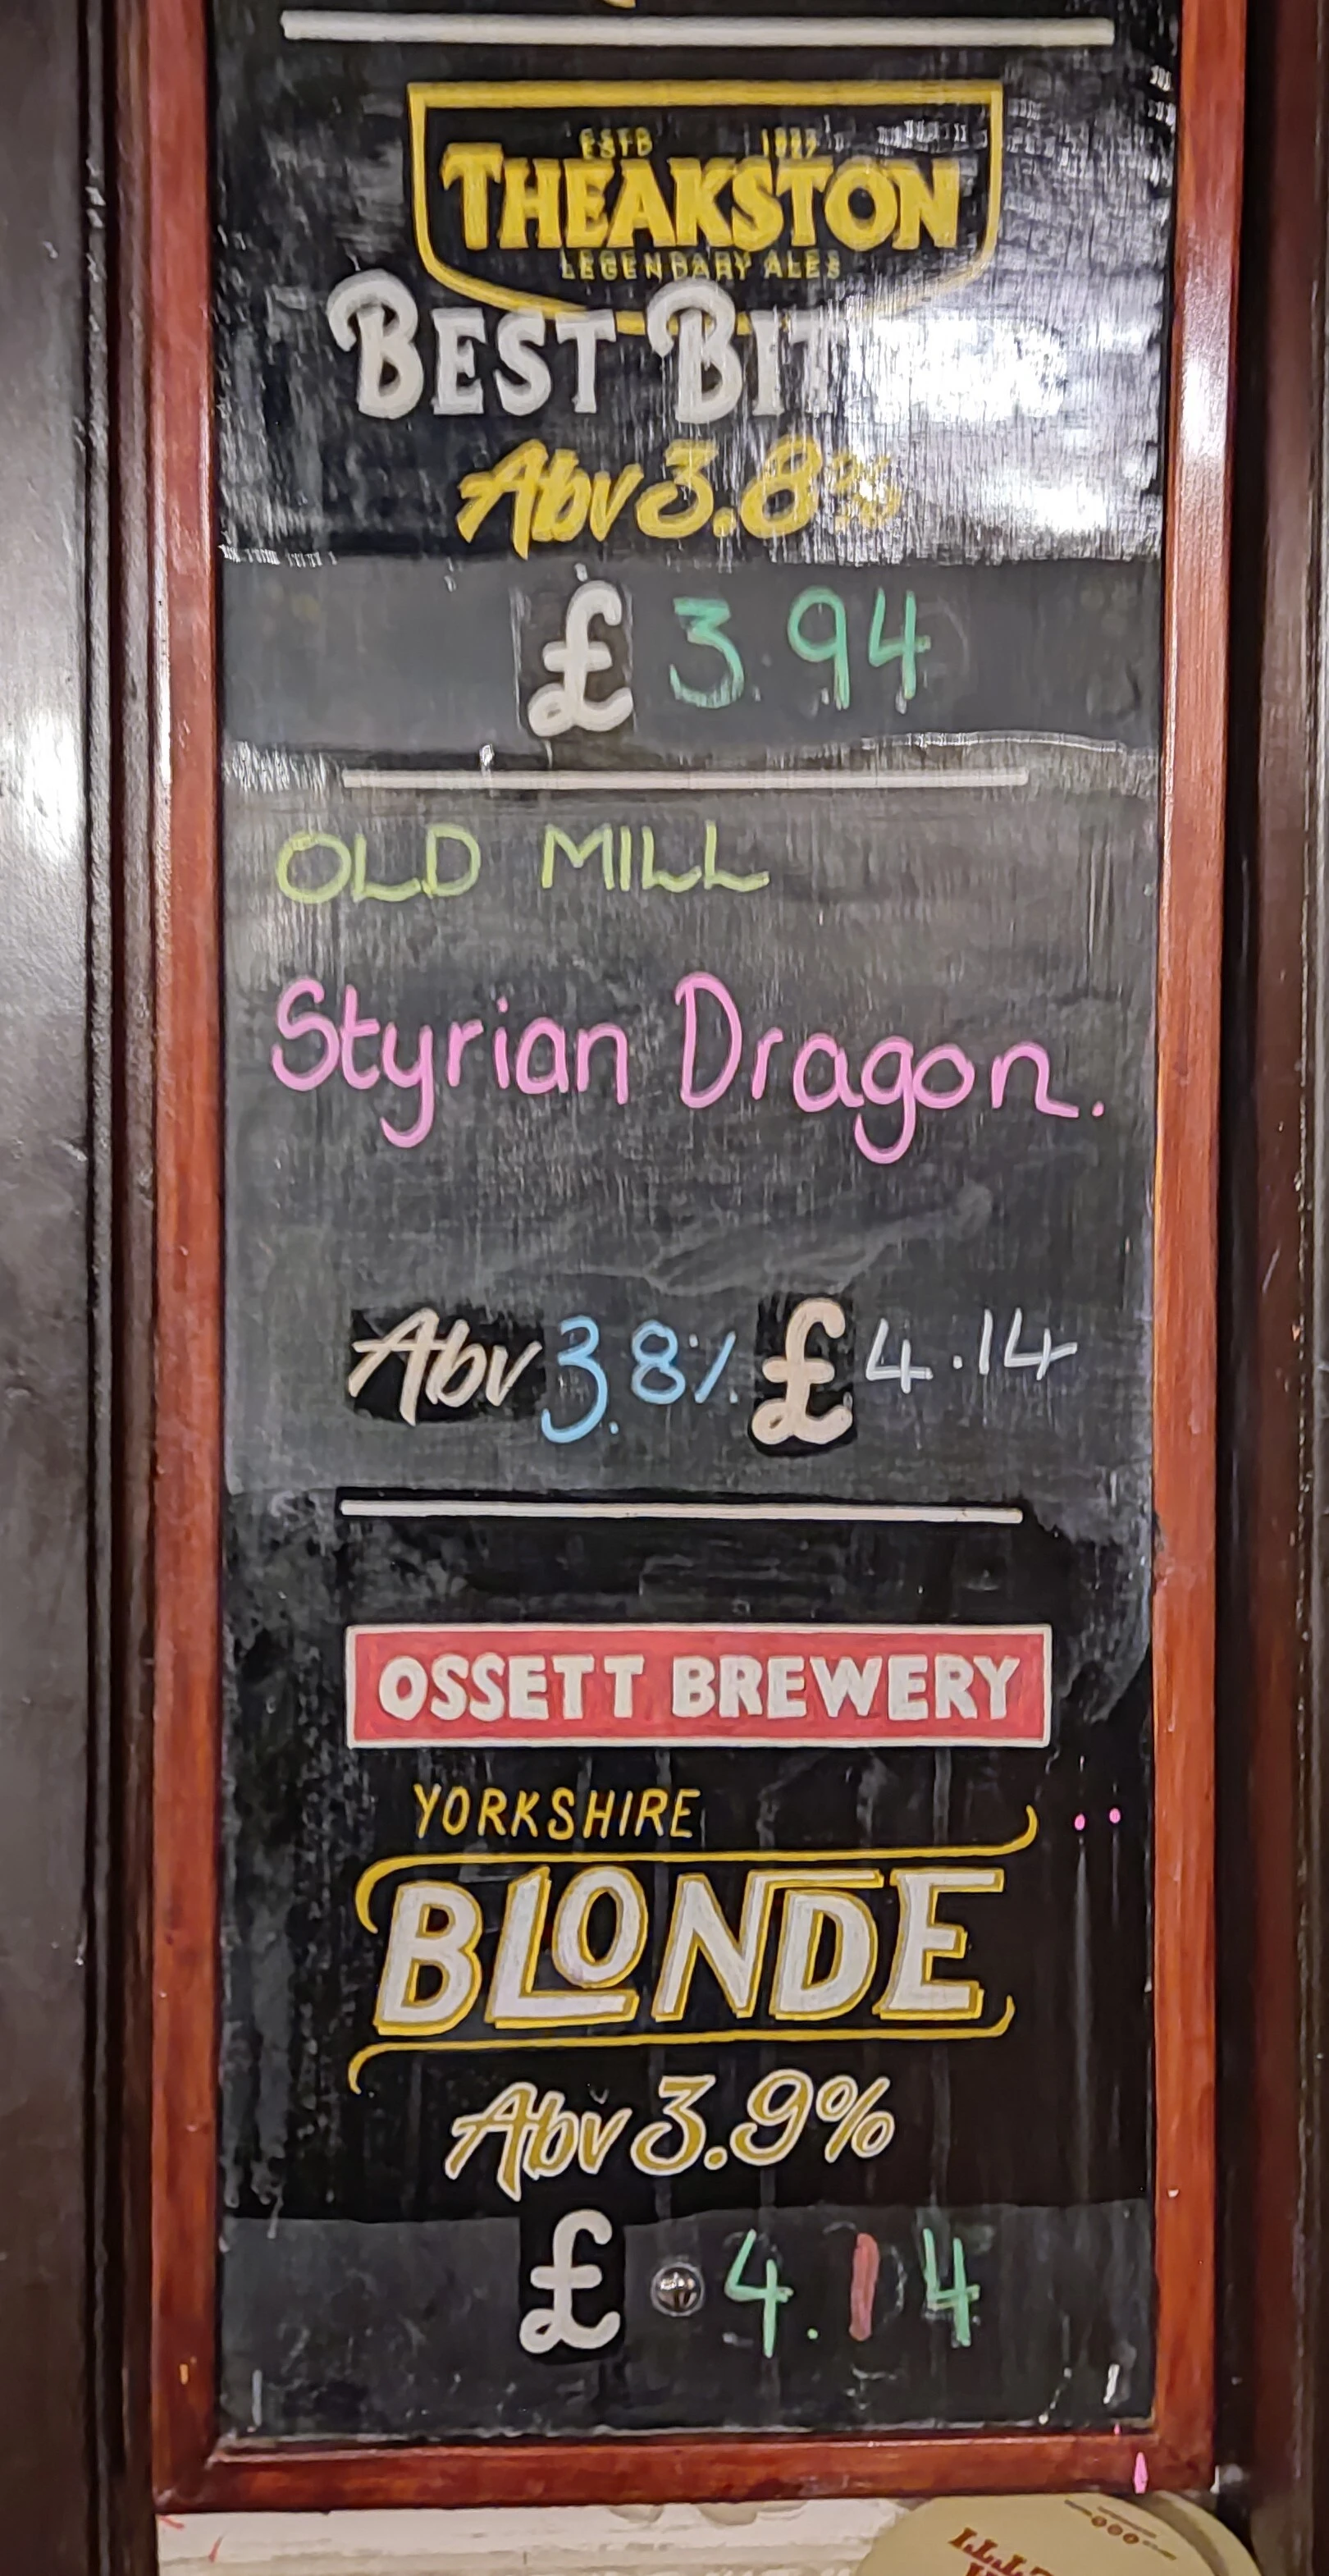 ESTD 1827
THEAKSTON
LEGENDARY ALES
BEST BITTER
Abv 3.8%
£ 3.94
OLD MILL
Styrian Dragon.
Abv 3.8% £4.14
OSSETT BREWERY
YORKSHIRE
BLONDE
Abv 3.9%
£ 4.14